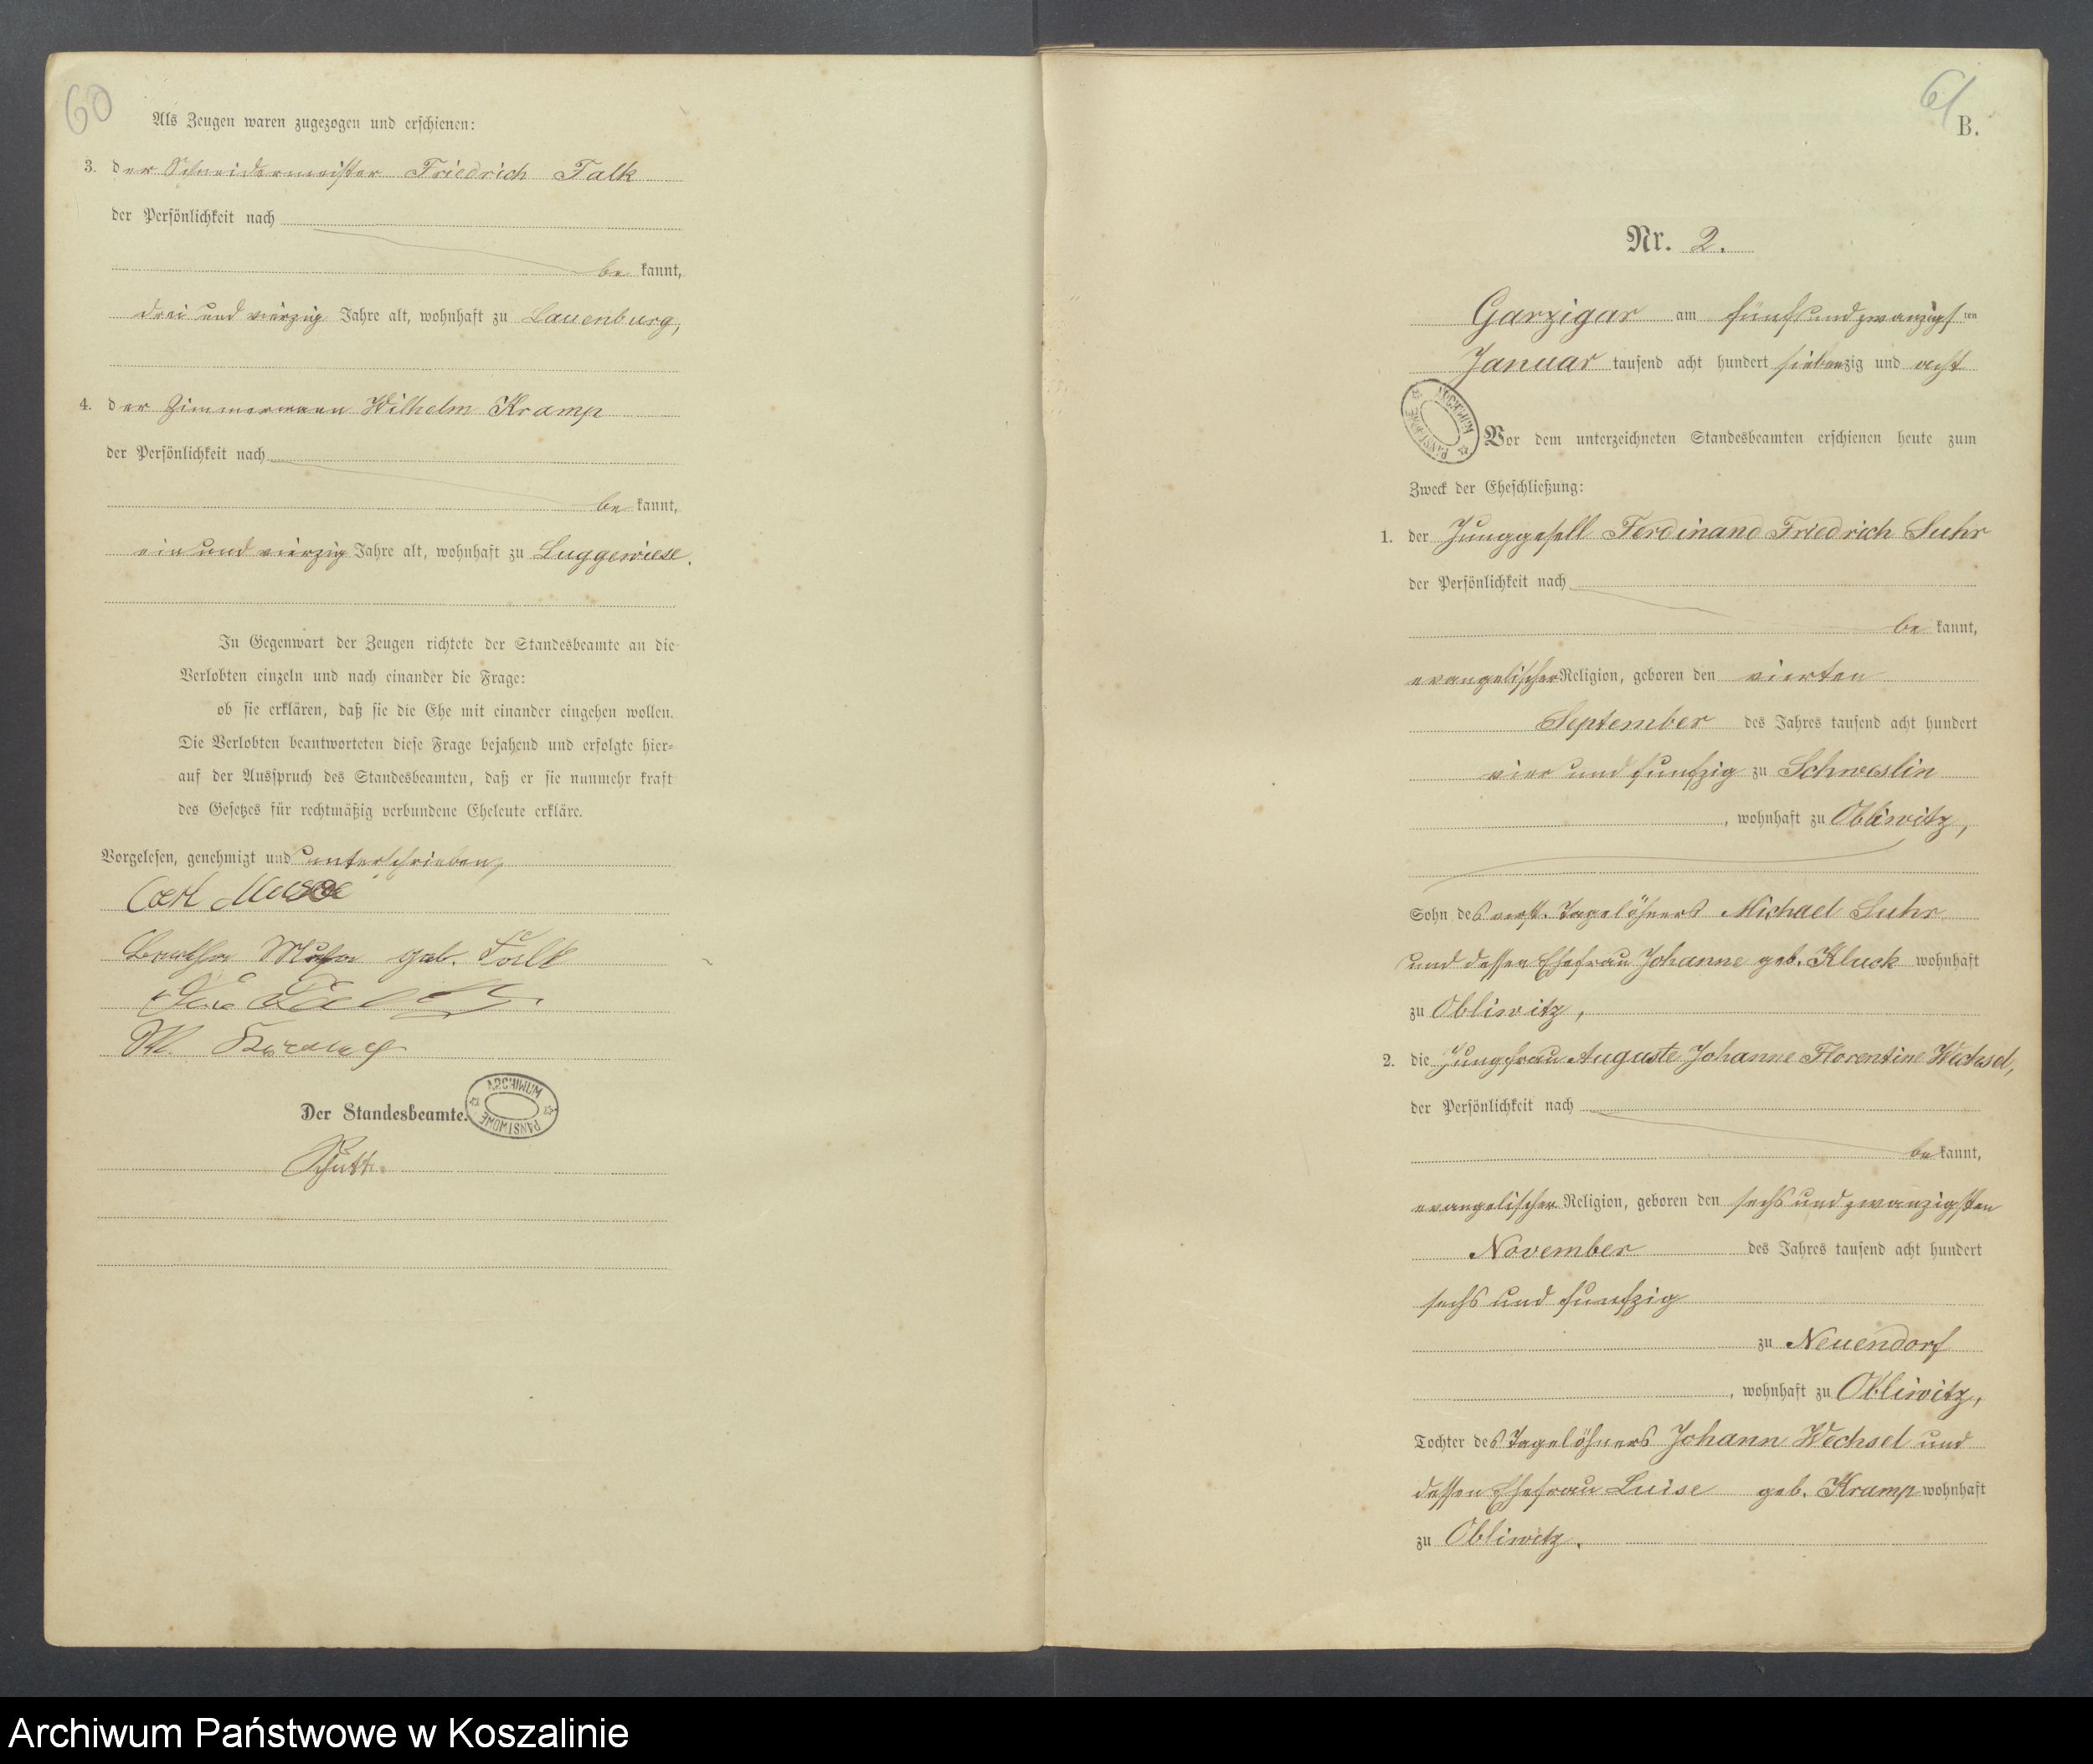 60
Als Zeugen waren zugezogen und erschienen:
3. der Schneidermeister Friedrich Falk
der Persönlichkeit nach
be kannt,
drei und vierzig Jahre alt, wohnhaft zu Lauenburg,
4. der Zimmermann Wilhelm Kramp
der Persönlichkeit nach
be kannt,
ein und vierzig Jahre alt, wohnhaft zu Luggewiese.
In Gegenwart der Zeugen richtete der Standesbeamte an die
Verlobten einzeln und nach einander die Frage:
ob sie erklären, daß sie die Ehe mit einander eingehen wollen.
Die Verlobten beantworteten diese Frage bejahend und erfolgte hier-
auf der Ausspruch des Standesbeamten, daß er sie nunmehr kraft
des Gesetzes für rechtmäßig verbundene Eheleute erkläre.
Vorgelesen, genehmigt und unterschrieben,
Carl
geb. Falk
W. Kramp
Der Standesbeamte.
ARCHIWUM PAŃSTWOWE
61
B.
Nr. 2.
Garzigar am fünf und zwanzigsten
Januar tausend acht hundert siebenzig und acht
ARCHIWUM PAŃSTWOWE
Vor dem unterzeichneten Standesbeamten erschienen heute zum
Zweck der Eheschließung:
1. der Junggesell Ferdinand Friedrich Suhr
der Persönlichkeit nach
be kannt,
evangelischer Religion, geboren den vierten
September des Jahres tausend acht hundert
vier und funfzig zu Schweslin
, wohnhaft zu Obliwitz,
Sohn des verst. Tagelöhners Michael Suhr
und dessen Ehefrau Johanne geb. Kluck wohnhaft
zu Obliwitz,
2. die Jungfrau Auguste Johanne Florentine Wechsel,
der Persönlichkeit nach
be kannt,
evangelischer Religion, geboren den sechs und zwanzigsten
November des Jahres tausend acht hundert
sechs und funfzig
zu Neuendorf
, wohnhaft zu Obliwitz,
Tochter des Tagelöhners Johann Wechsel und
dessen Ehefrau Luise geb. Kramp wohnhaft
zu Obliwitz.
Archiwum Państwowe w Koszalinie